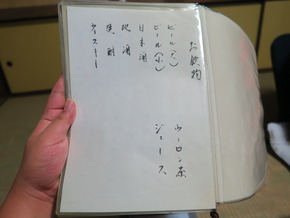 お飲物
ビール(大)
ビール(小)
日本酒
地酒
焼酎
ウイスキー
ウーロン茶
ジュース